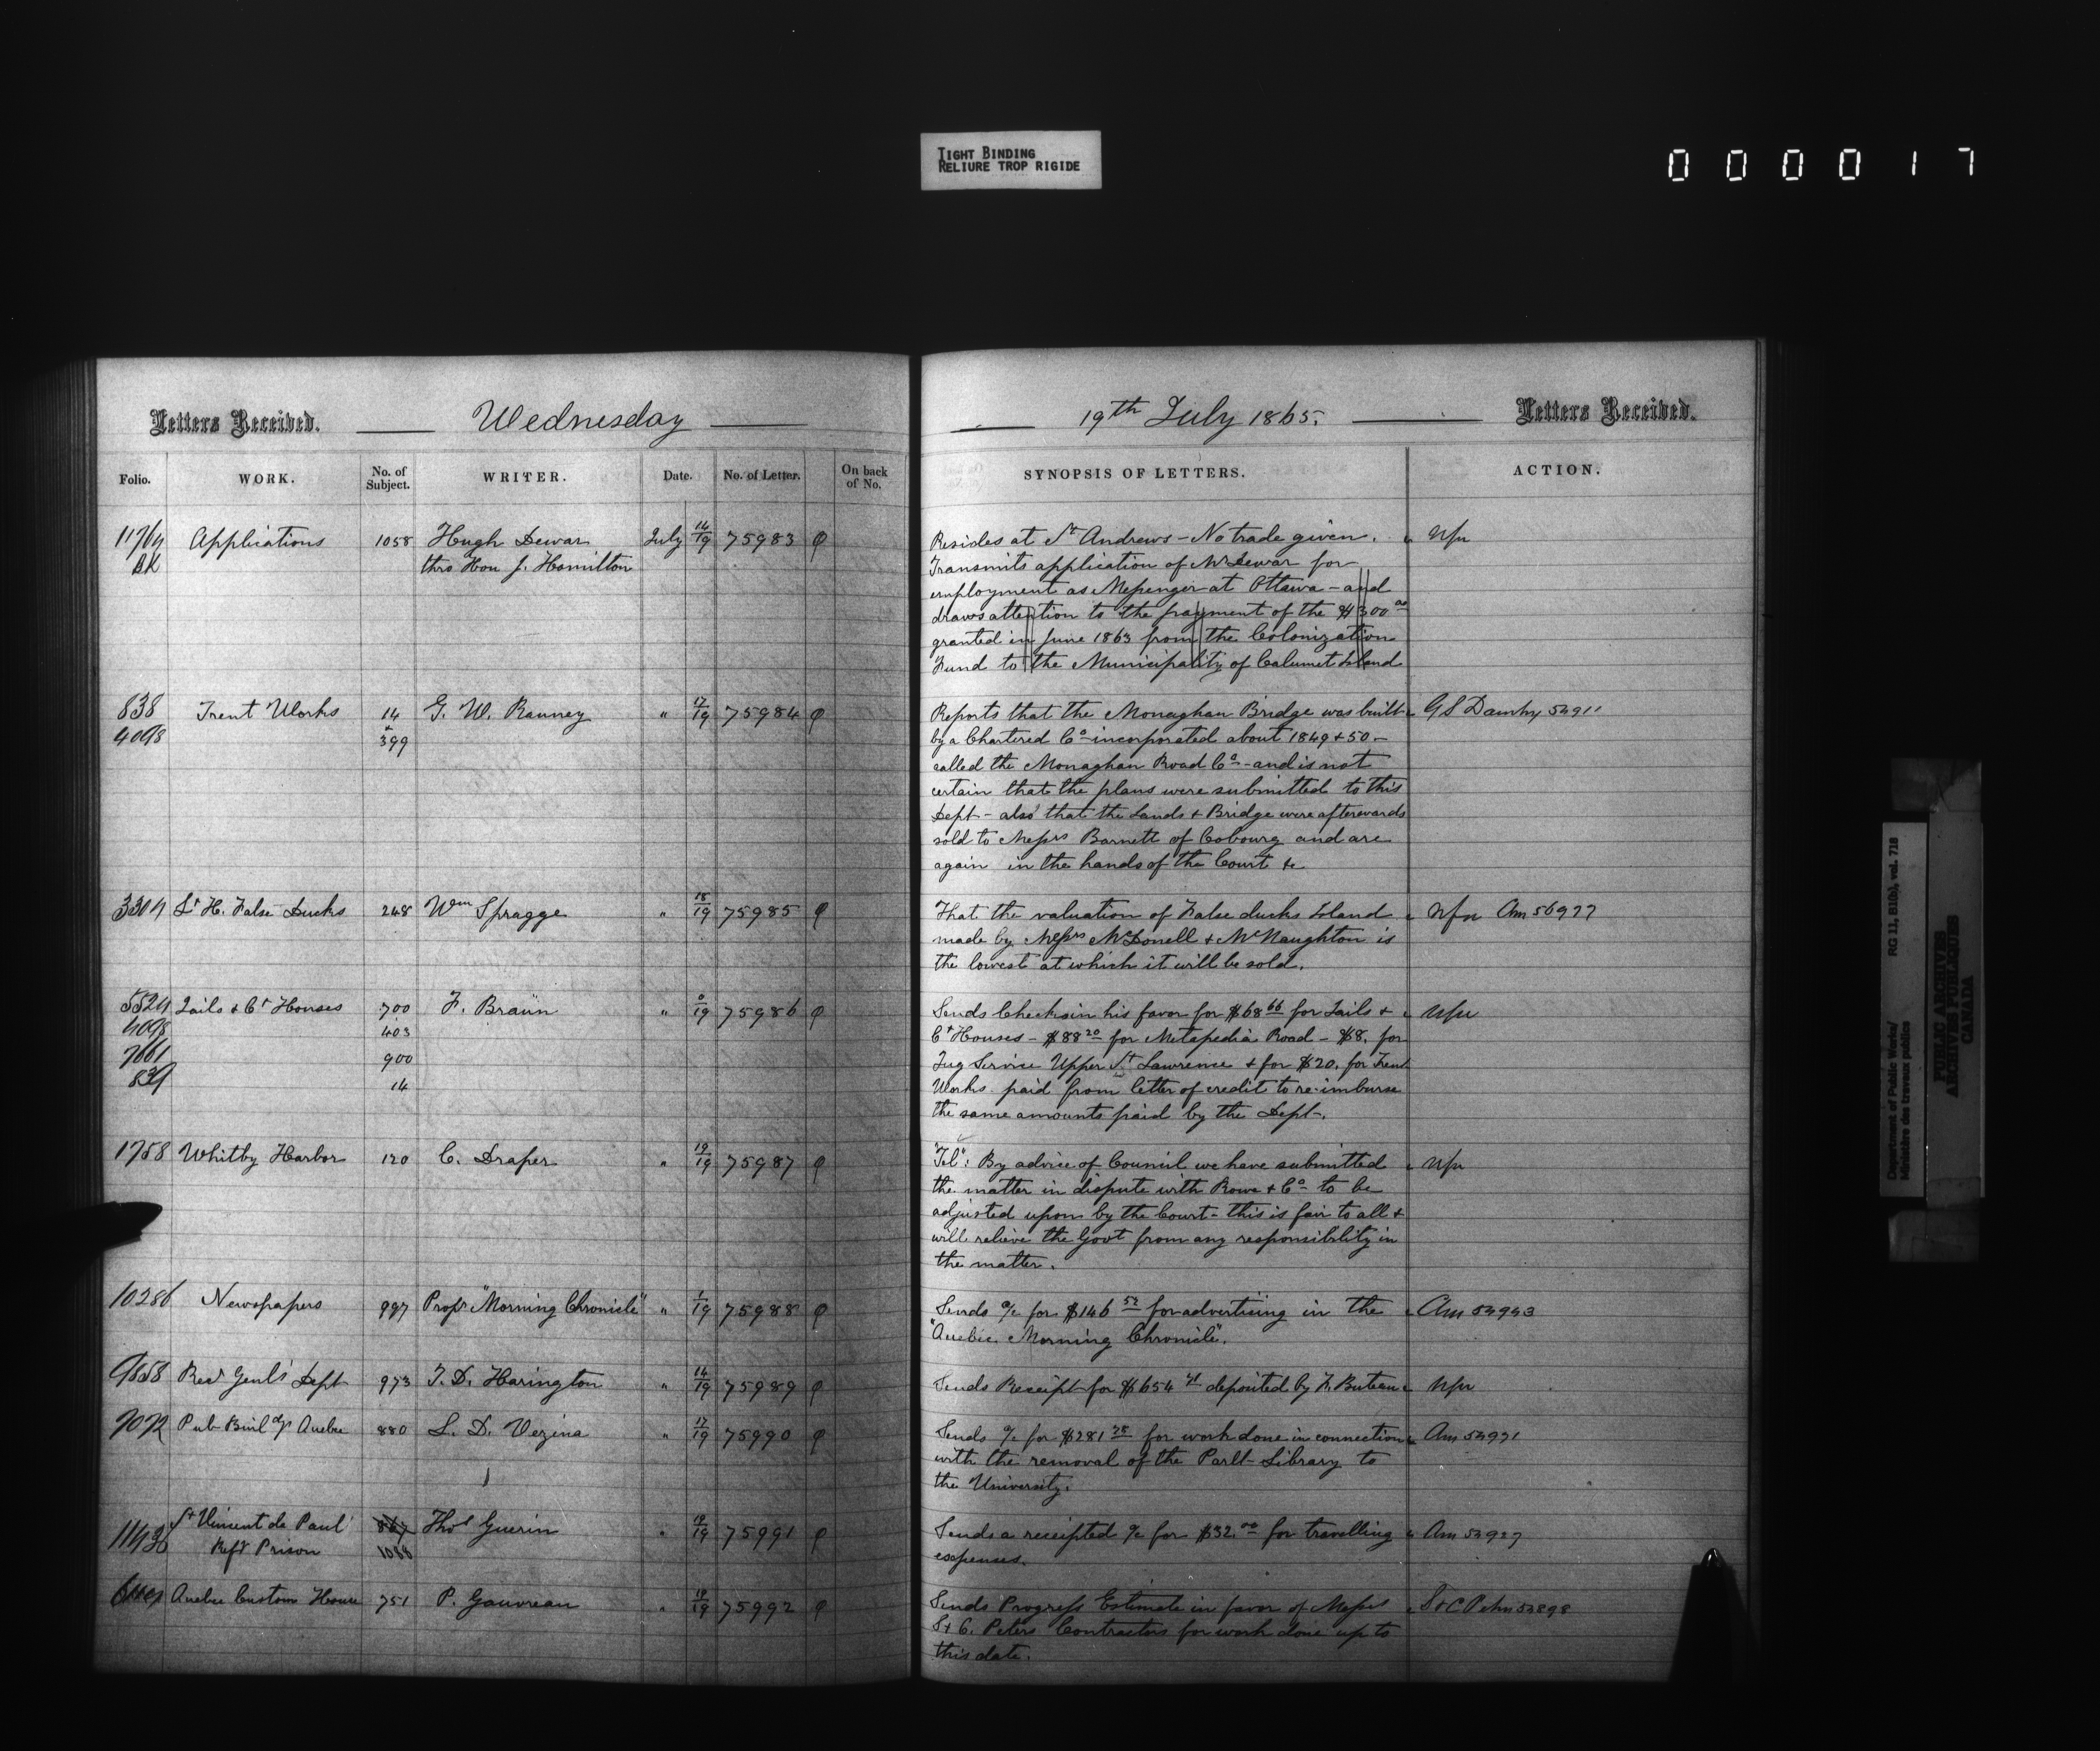 TIGHT BINDING
RELIURE TROP RIGIDE
000017
Letters Received.
Wednesday
19th July 1865.
Letters Received.
Folio.
WORK.
No. of Subject.
WRITER.
Date.
No. of Letter.
On back of No.
SYNOPSIS OF LETTERS.
ACTION.
BK
Applications 1058 Hugh Dewar July 14/19 75983
thro Hon J. Hamilton
Resides at St Andrews - No trade given.
Transmits application of Mr Dewar for
employment as Messenger at Ottawa - and
draws attention to the payment of the $300 00
granted in June 1863 from the Colonization
Fund to the Municipality of Calumet Island
838 Trent Works 14 G. W. Ranney " 17/19 75984
4098 & 399
Reports that the Monaghan Bridge was built
by a Chartered Co incorporated about 1849 & 50 -
called the Monaghan Road Co - and is not
certain that the plans were submitted to this
Dept - also that the Lands & Bridge were afterwards
sold to Messrs Barnett of Cobourg and are
again in the hands of the Court &c
Lt H. False Ducks 248 Wm Spragge " 18/19 75985
That the valuation of False ducks Island
made by Messrs McDonell & McNaughton is
the lowest at which it will be sold.
Jails & Ct Houses 700 F. Braün " 0/19 75986
403
7661 900
839 14
Sends Checks in his favor for $68 66 for Jails &
Ct Houses - $88 20 for Metapedia Road - $8. for
Tug Service Upper St Lawrence & for $20. for Trent
Works paid from letter of credit to re-imburse
the same amounts paid by the Dept.
1758 Whitby Harbor 120 C. Draper " 19/19 75987
"Tel": By advice of Council we have submitted
the matter in dispute with Rowe & Co to be
adjusted upon by the Court - this is fair to all &
will relieve the Govt from any responsibility in
the matter.
10286 Newspapers 997 Propr "Morning Chronicle" " 1/19 75988
Sends a/c for $146 52 for advertising in the
"Quebec Morning Chronicle".
9858 Recr Genl's Dept 973 T. D. Harington " 14/19 75989
Sends Receipt for $654 deposited by F. Buteau
7072 Pub Buildgs Quebec 880 L. D. Vezina " 17/19 75990
Sends a/c for $281 for work done in connection
with the removal of the Parlt Library to
the University.
St Vincent de Paul 867 Thos Guerin " 75991
Reft Prison 1088
Sends a receipted a/c for $32.00 for travelling
expenses.
Quebec Custom House 751 P. Gauvreau " 75992
Sends Progress Estimate in favor of Messrs
S & C. Peters Contractors for work done up to
this date.
Department of Public Works/ RG 11, B1(b), vol. 718
Ministère des travaux publics
PUBLIC ARCHIVES
ARCHIVES PUBLIQUES
CANADA